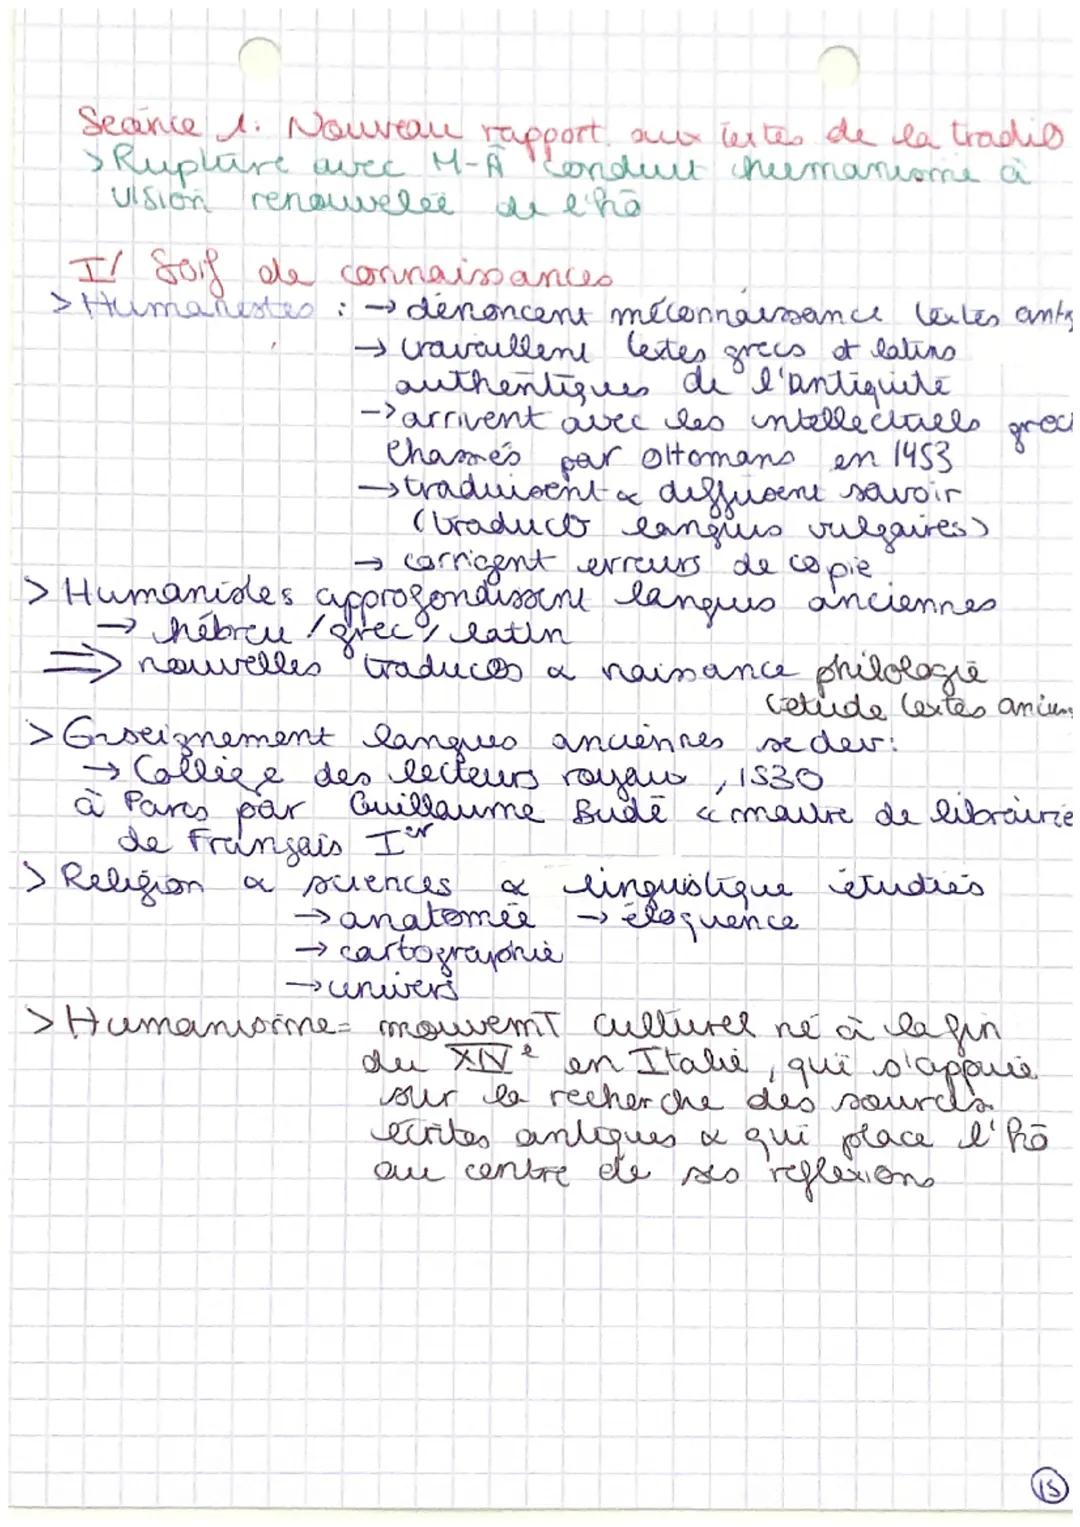 Séance 1: Nouveau rapport aux textes de la tradi°
> Rupture avec M-Â conduit humanisme à
vision renouvelée de l'hô
I/ Soif de connaissances
> Humanistes : → dénoncent méconnaissance textes ants
→ travaillent textes grecs et latins
authentiques de l'antiquité
→ arrivent avec les intellectuels grecs
chassés par Ottomans en 1453
→ traduisent & diffusent savoir
(traduc° langues vulgaires)
→ corrigent erreurs de copie
> Humanistes approfondissent langues anciennes
→ hébreu / grec / latin
⇒ nouvelles traducos & naissance philologie
(étude textes anciens
> Enseignement langues anciennes se dev:
→ Collège des lecteurs royaux, 1530
à Paris par Guillaume Budé « maître de librairie
de Français Ier
> Religion & sciences & linguistique étudiés
→ anatomie → éloquence
→ cartographie
→ univers
> Humanisme = mouvemT culturel né à la fin
du XIVe en Italie, qui s'appuie
sur la recherche des sources
écrites antiques & qui place l'hô
au centre de ses réflexions
15